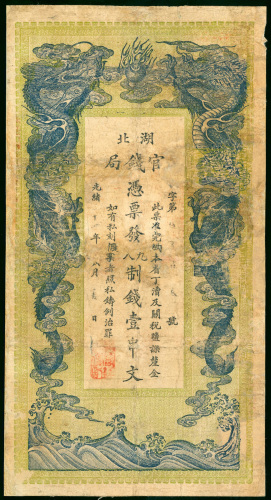 湖北
官錢局
憑票發九八制錢壹串文
字第 號
此票准完納本省丁漕及關稅鹽課釐金
如有私刻憑票者照私鑄例治罪
光緒 年 八月 日